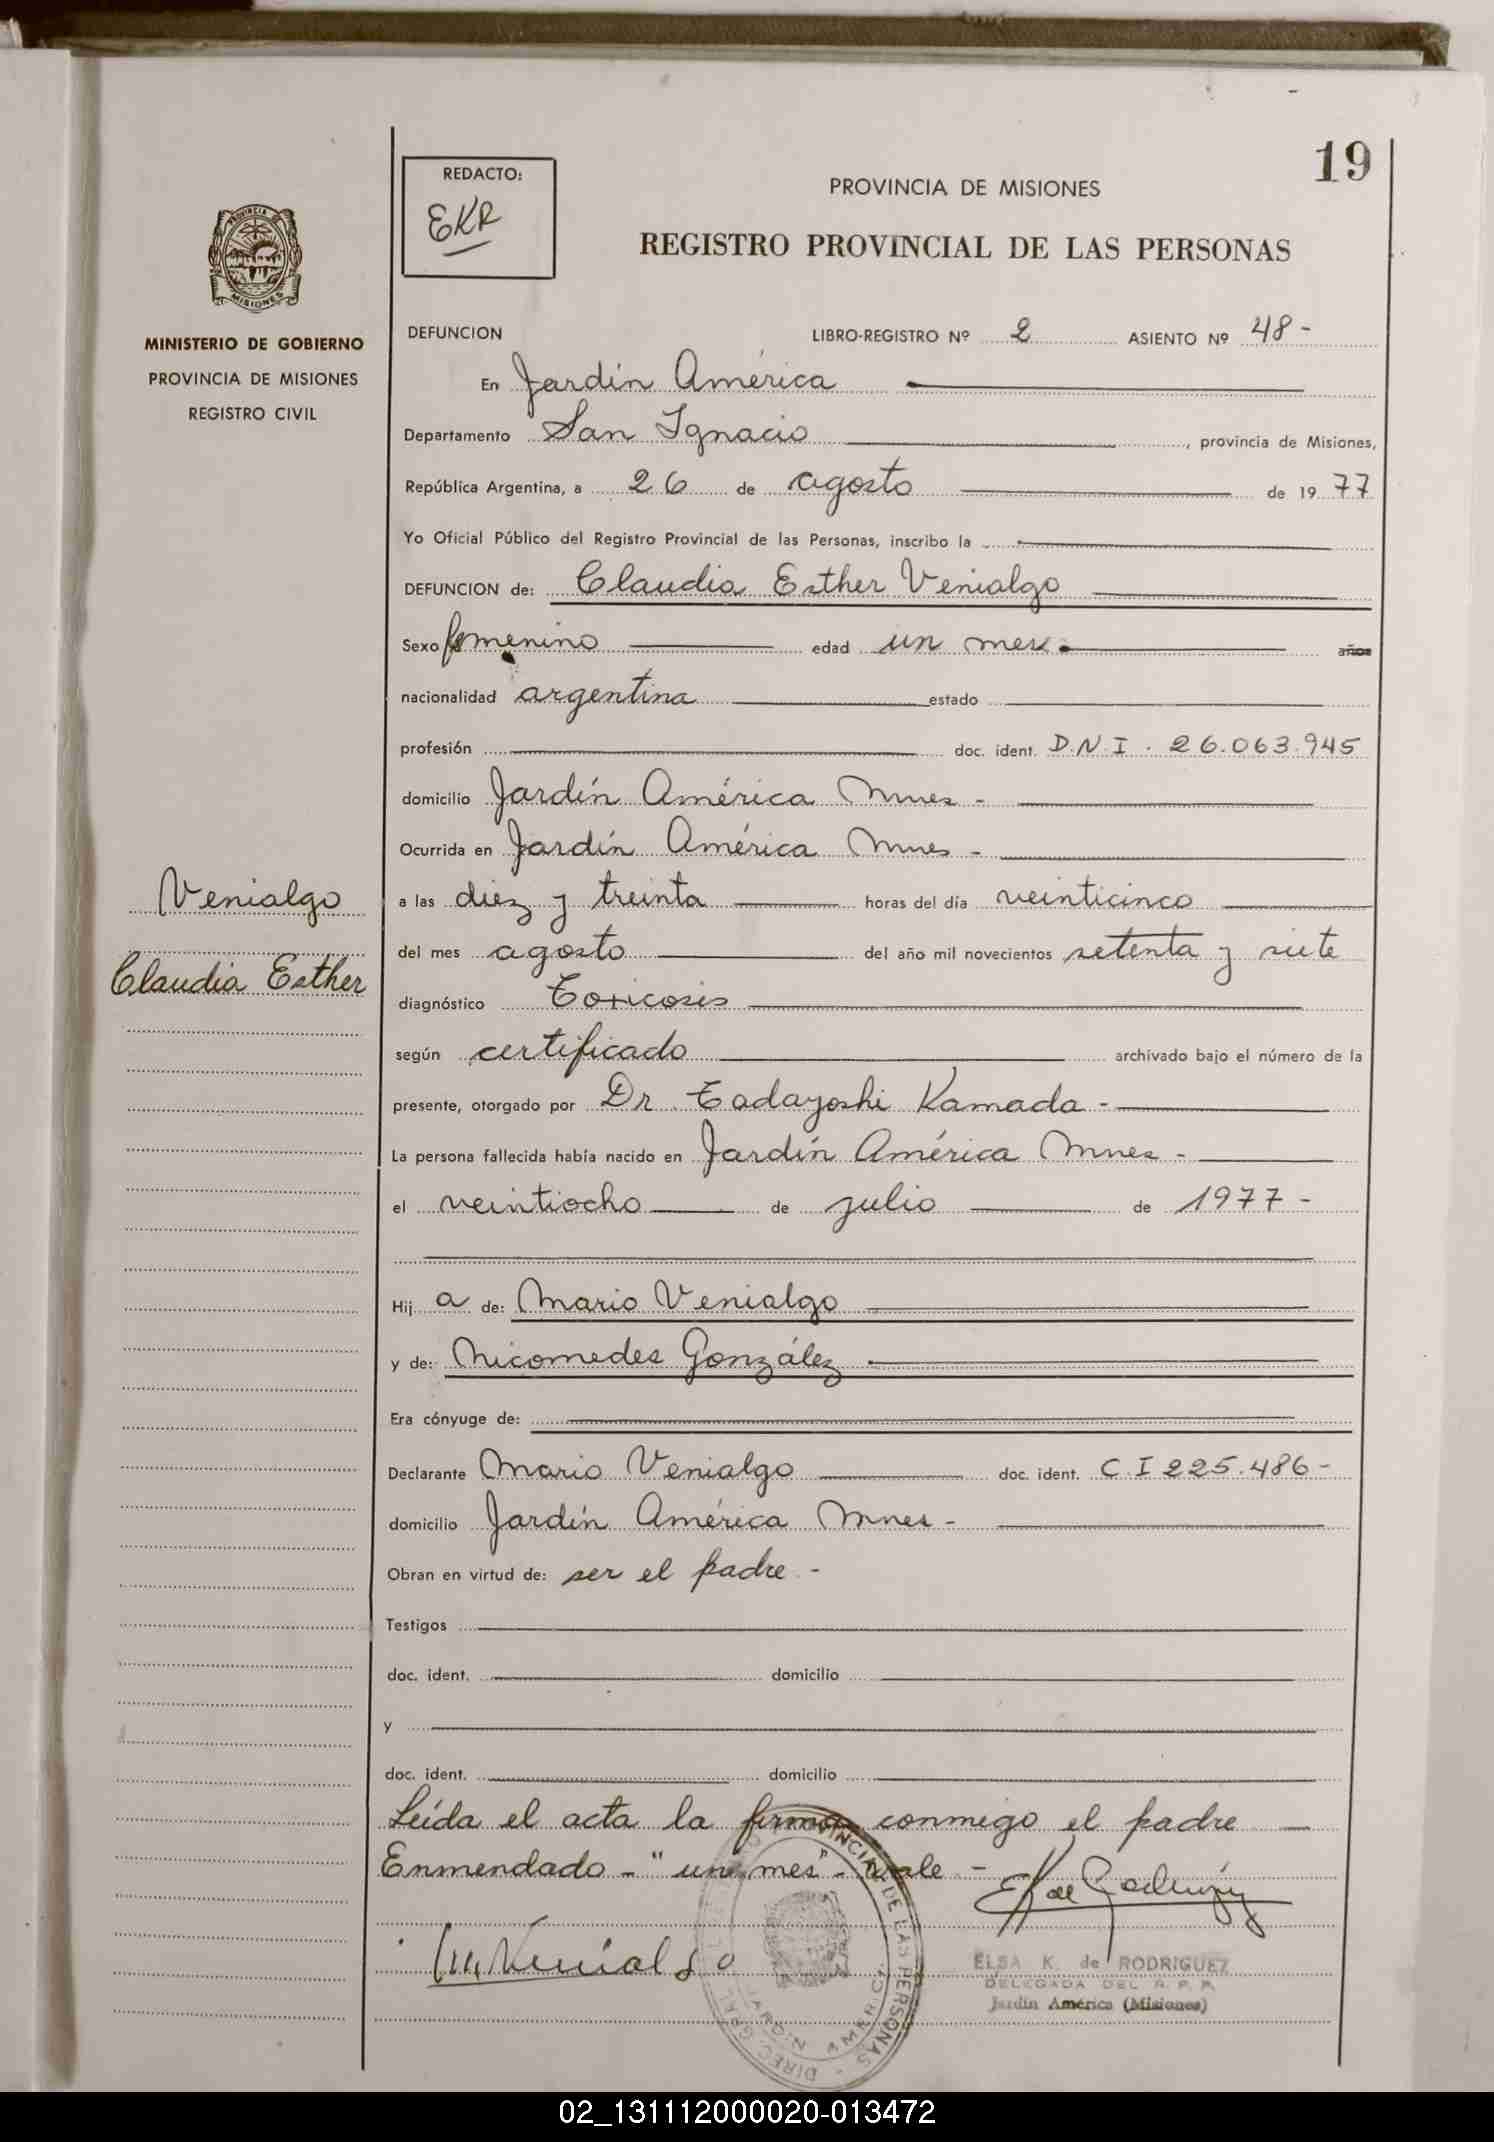 19
REDACTO:
EKR
PROVINCIA DE MISIONES
REGISTRO PROVINCIAL DE LAS PERSONAS
PROVINCIA DE
MISIONES
MINISTERIO DE GOBIERNO
PROVINCIA DE MISIONES
REGISTRO CIVIL
DEFUNCION LIBRO-REGISTRO Nº 2 ASIENTO Nº 48 -
En Jardín América
Departamento San Ignacio, provincia de Misiones,
República Argentina, a 26 de agosto de 1977
Yo Oficial Público del Registro Provincial de las Personas, inscribo la
DEFUNCION de: Claudia Esther Venialgo
Sexo femenino edad un mes años
nacionalidad argentina estado
profesión doc. ident. D.N.I. 26.063.945
domicilio Jardín América Mnes -
Ocurrida en Jardín América Mnes -
Venialgo
Claudia Esther
a las diez y treinta horas del día veinticinco
del mes agosto del año mil novecientos setenta y siete
diagnóstico Toxicosis
según certificado archivado bajo el número de la
presente, otorgado por Dr. Tadayoshi Kamada -
La persona fallecida había nacido en Jardín América Mnes -
el veintiocho de julio de 1977 -
Hij a de: Mario Venialgo
y de: Nicomedes González
Era cónyuge de:
Declarante Mario Venialgo doc. ident. C.I 225.486 -
domicilio Jardín América Mnes -
Obran en virtud de: ser el padre. -
Testigos
doc. ident. domicilio
y
doc. ident. domicilio
Leída el acta la firma conmigo el padre
Enmendado - "un mes" - vale -
M Venialgo
ELSA K. de RODRIGUEZ
DELEGADA DEL R. P. P.
Jardín América (Misiones)
02_131112000020-013472